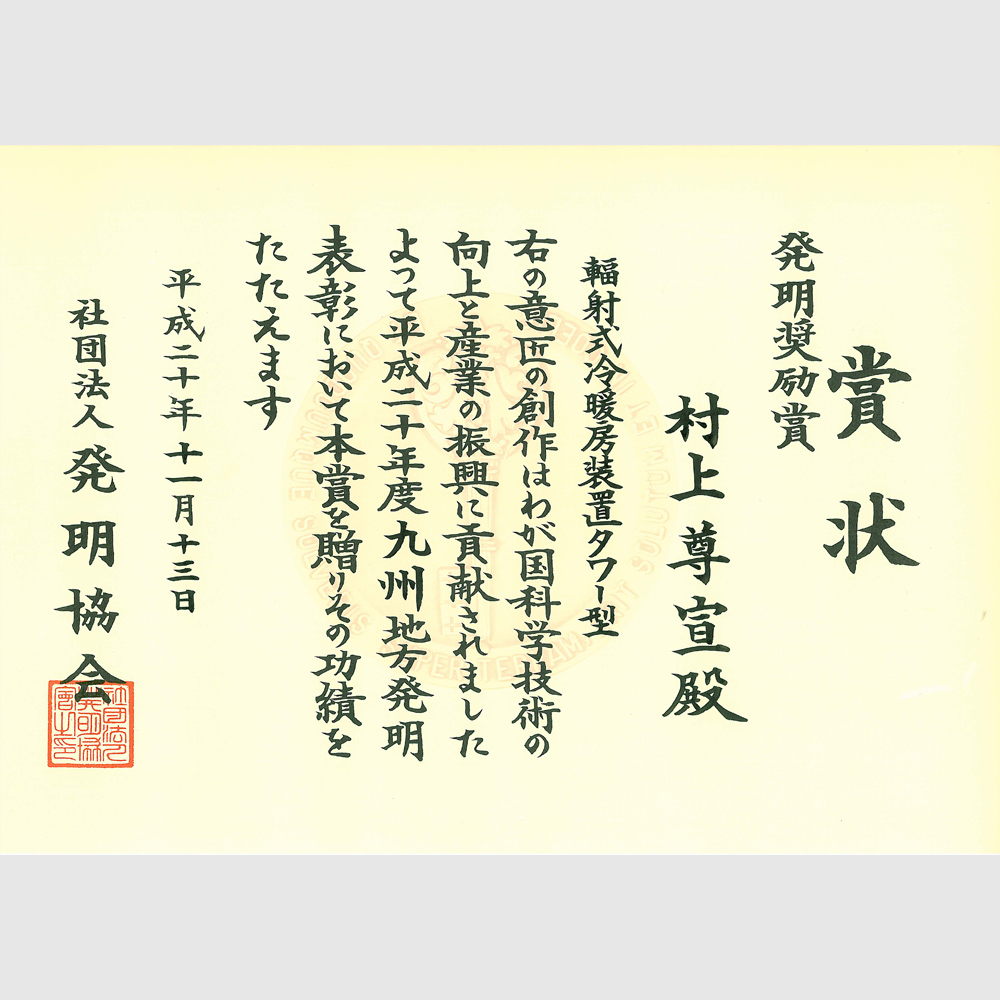 賞状
発明奨励賞
村上尊宣殿
輻射式冷暖房装置タワー型
右の意匠の創作はわが国科学技術の
向上と産業の振興に貢献されました
よって平成二十年度九州地方発明
表彰において本賞を贈りその功績を
たたえます
平成二十年十一月十三日
社団法人発明協会
社団法人
発明協
會之印